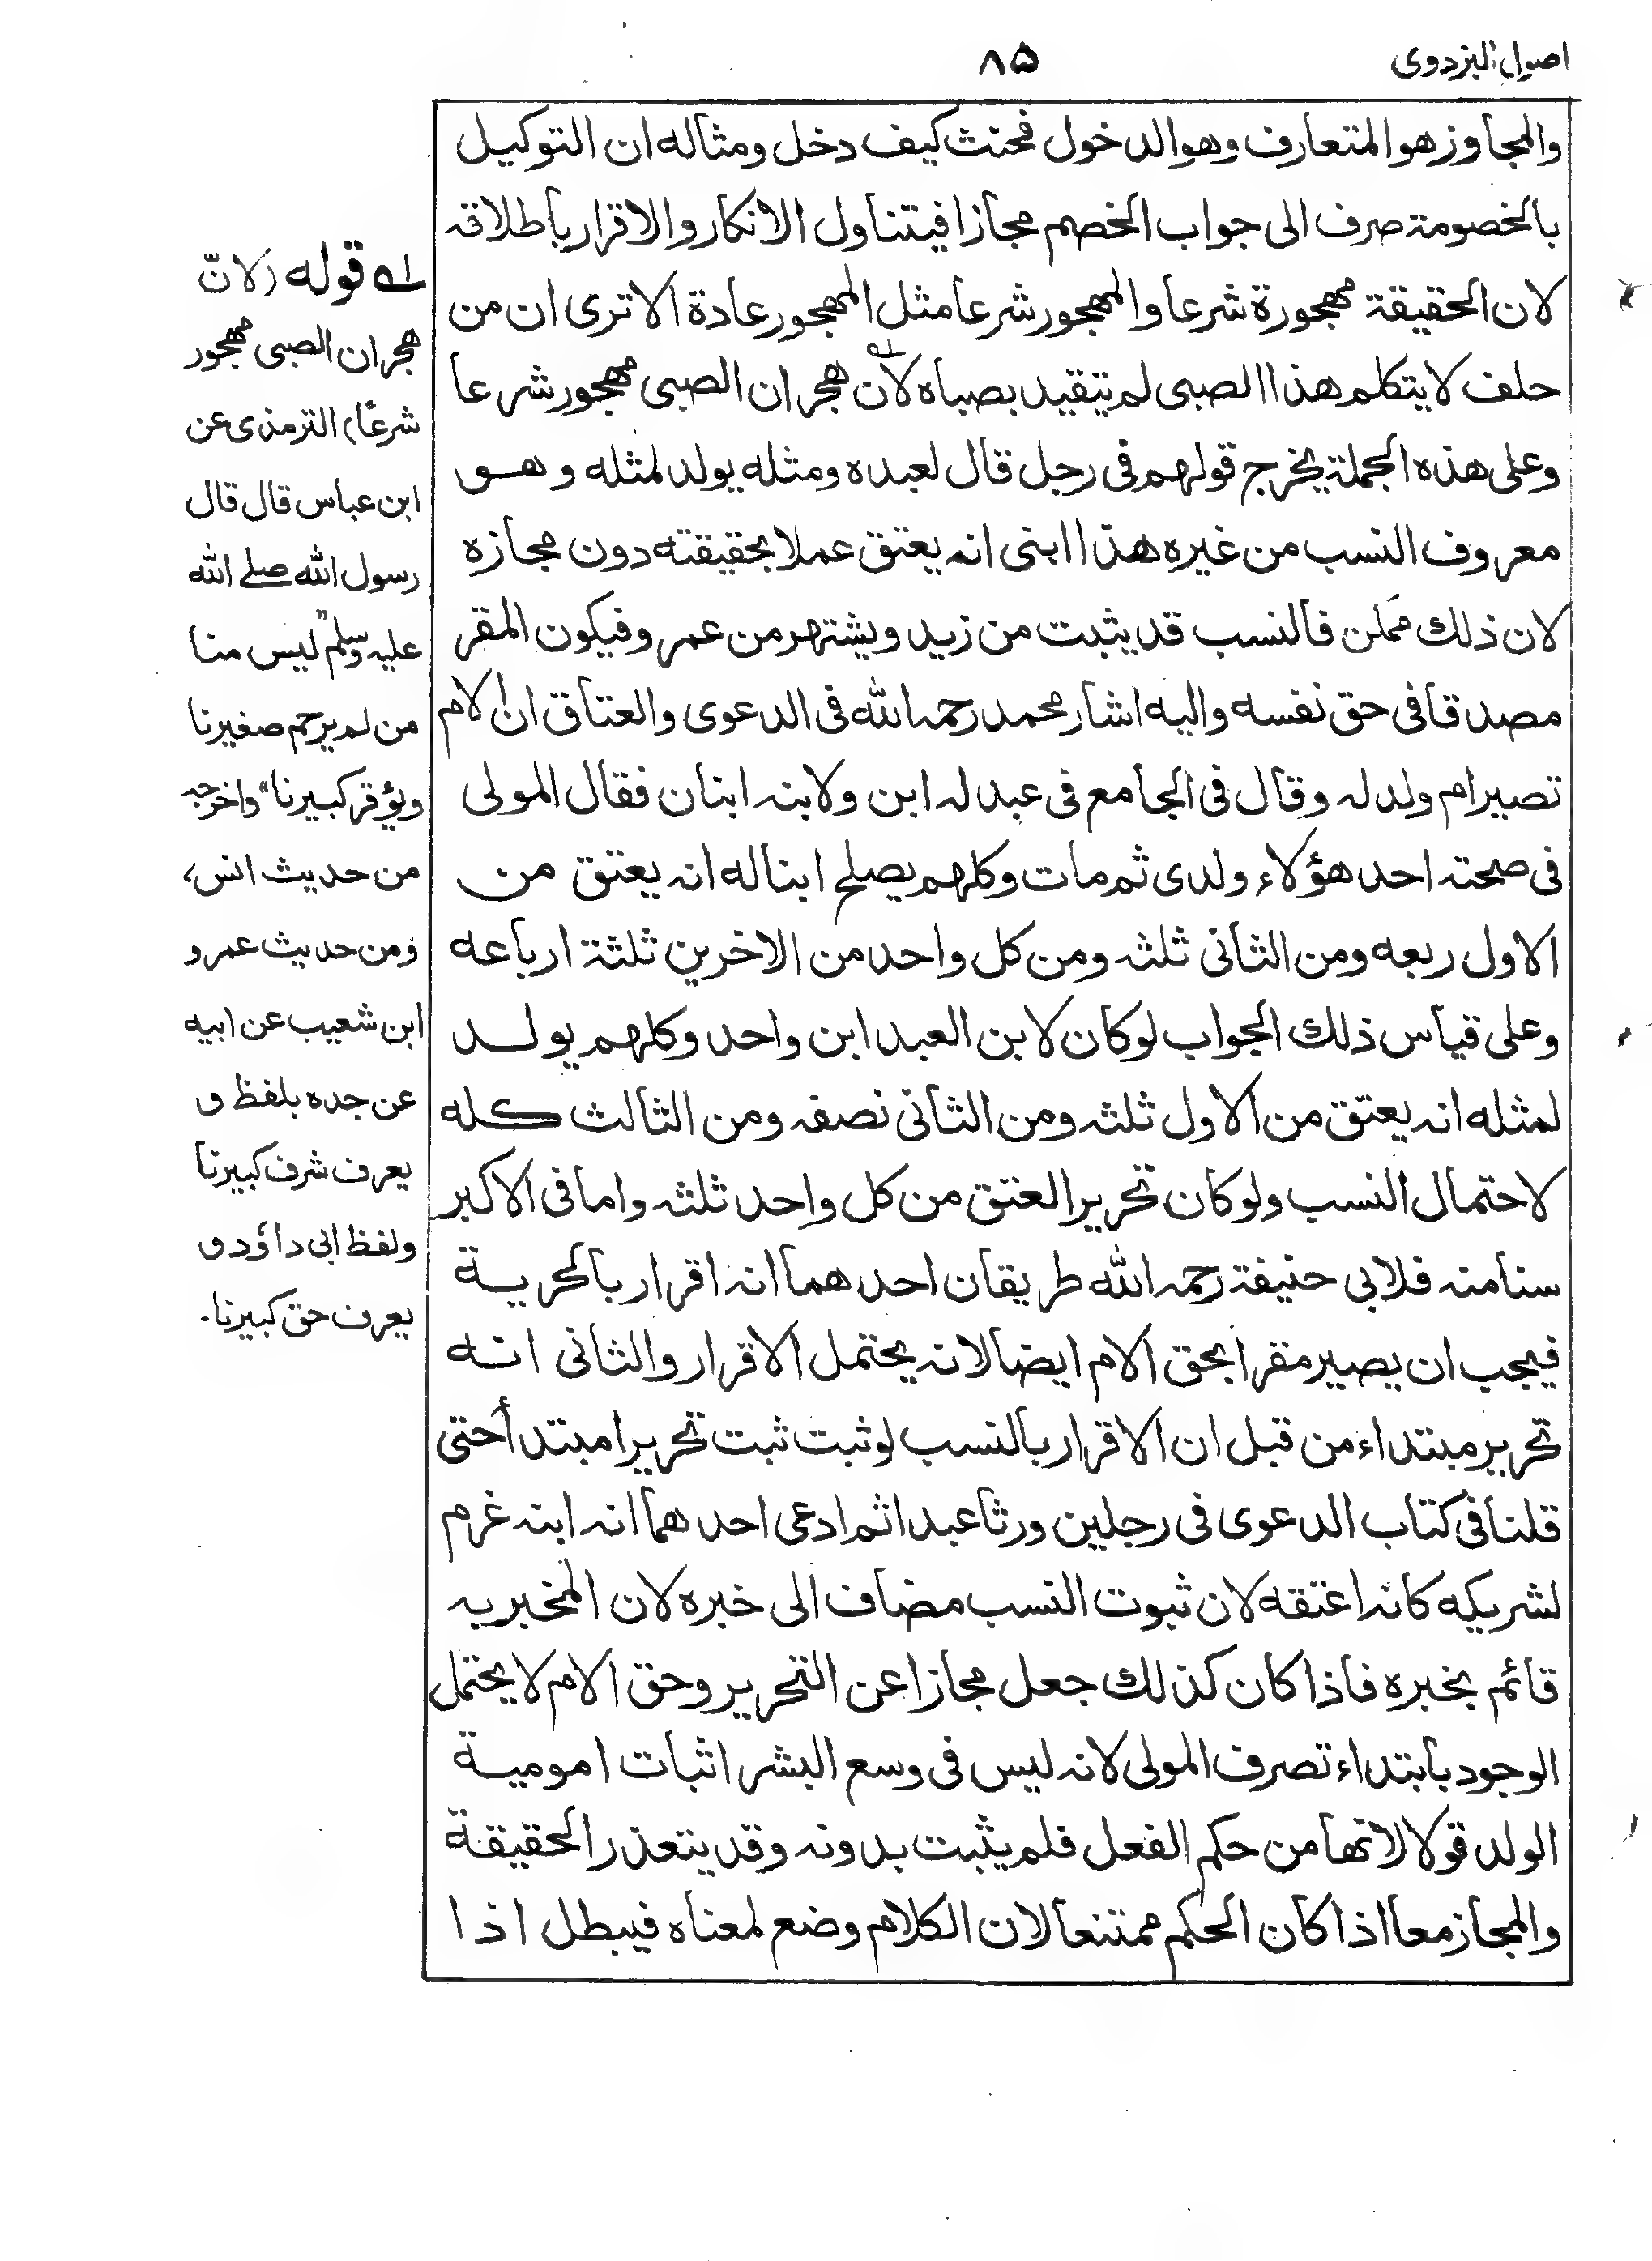 اصول البزدوی
۸۵
والمجاوز هو المتعارف وهو الدخول فحنث كيف دخل ومثاله ان التوكيل
بالخصومة صرف الى جواب الخصم مجازا فيتناول الانكار والاقرار باطلاقه
لان الحقيقة مهجورة شرعا والمهجور شرعا مثل المهجور عادة الا ترى ان من
حلف لا يتكلم هذا الصبى لم يتقيد بصباه لان هجران الصبى مهجور شرعا
وعلى هذه الجملة يخرج قولهم فى رجل قال لعبده ومثله يولد لمثله وهو
معروف النسب من غيره هذا ابنى انه يعتق عملا بحقيقته دون مجازه
لان ذلك ممكن فالنسب قد يثبت من زيد ويشتهر من عمرو فيكون المقر
مصدقا فى حق نفسه واليه اشار محمد رحمه الله فى الدعوى والعتاق ان الام
تصير ام ولد له وقال فى الجامع فى عبد له ابن ولابنه ابنان فقال المولى
فى صحته احد هؤلاء ولدى ثم مات وكلهم يصلح ابنا له انه يعتق من
الاول ربعه ومن الثانى ثلثه ومن كل واحد من الاخرين ثلثة ارباعه
وعلى قياس ذلك الجواب لو كان لابن العبد ابن واحد وكلهم يولد
لمثله انه يعتق من الاول ثلثه ومن الثانى نصفه ومن الثالث كله
لاحتمال النسب ولو كان تحرير العتق من كل واحد ثلثه واما فى الاكبر
سنا منه فلابى حنيفة رحمه الله طريقان احدهما انه اقرار بالحرية
فيجب ان يصير مقرا بحق الام ايضا لانه يحتمل الاقرار والثانى انه
تحرير مبتداء من قبل ان الاقرار بالنسب لو ثبت ثبت تحريرا مبتدأ حتى
قلنا فى كتاب الدعوى فى رجلين ورثا عبدا ثم ادعى احدهما انه ابنه غرم
لشريكه كانه اعتقه لان ثبوت النسب مضاف الى خبره لان المخبر به
قائم بخبره فاذا كان كذلك جعل مجازا عن التحرير وحق الام لا يحتمل
الوجود بابتداء تصرف المولى لانه ليس فى وسع البشر اثبات امومية
الولد قولا لانها من حكم الفعل فلم يثبت بدونه وقد يتعذر الحقيقة
والمجاز معا اذا كان الحكم ممتنعا لان الكلام وضع لمعناه فيبطل اذا
له قوله (لانّ
هجران الصبى مهجور
شرعًا) الترمذى عن
ابن عباس قال قال
رسول الله صلے الله
عليه وسلم "ليس منا
من لم يرحم صغيرنا
ويؤقر كبيرنا" واخرجه
من حديث انس،
ومن حديث عمرو
ابن شعيب عن ابيه
عن جده بلفظ و
يعرف شرف كبيرنا
ولفظ ابى داؤد و
يعرف حق كبيرنا۔